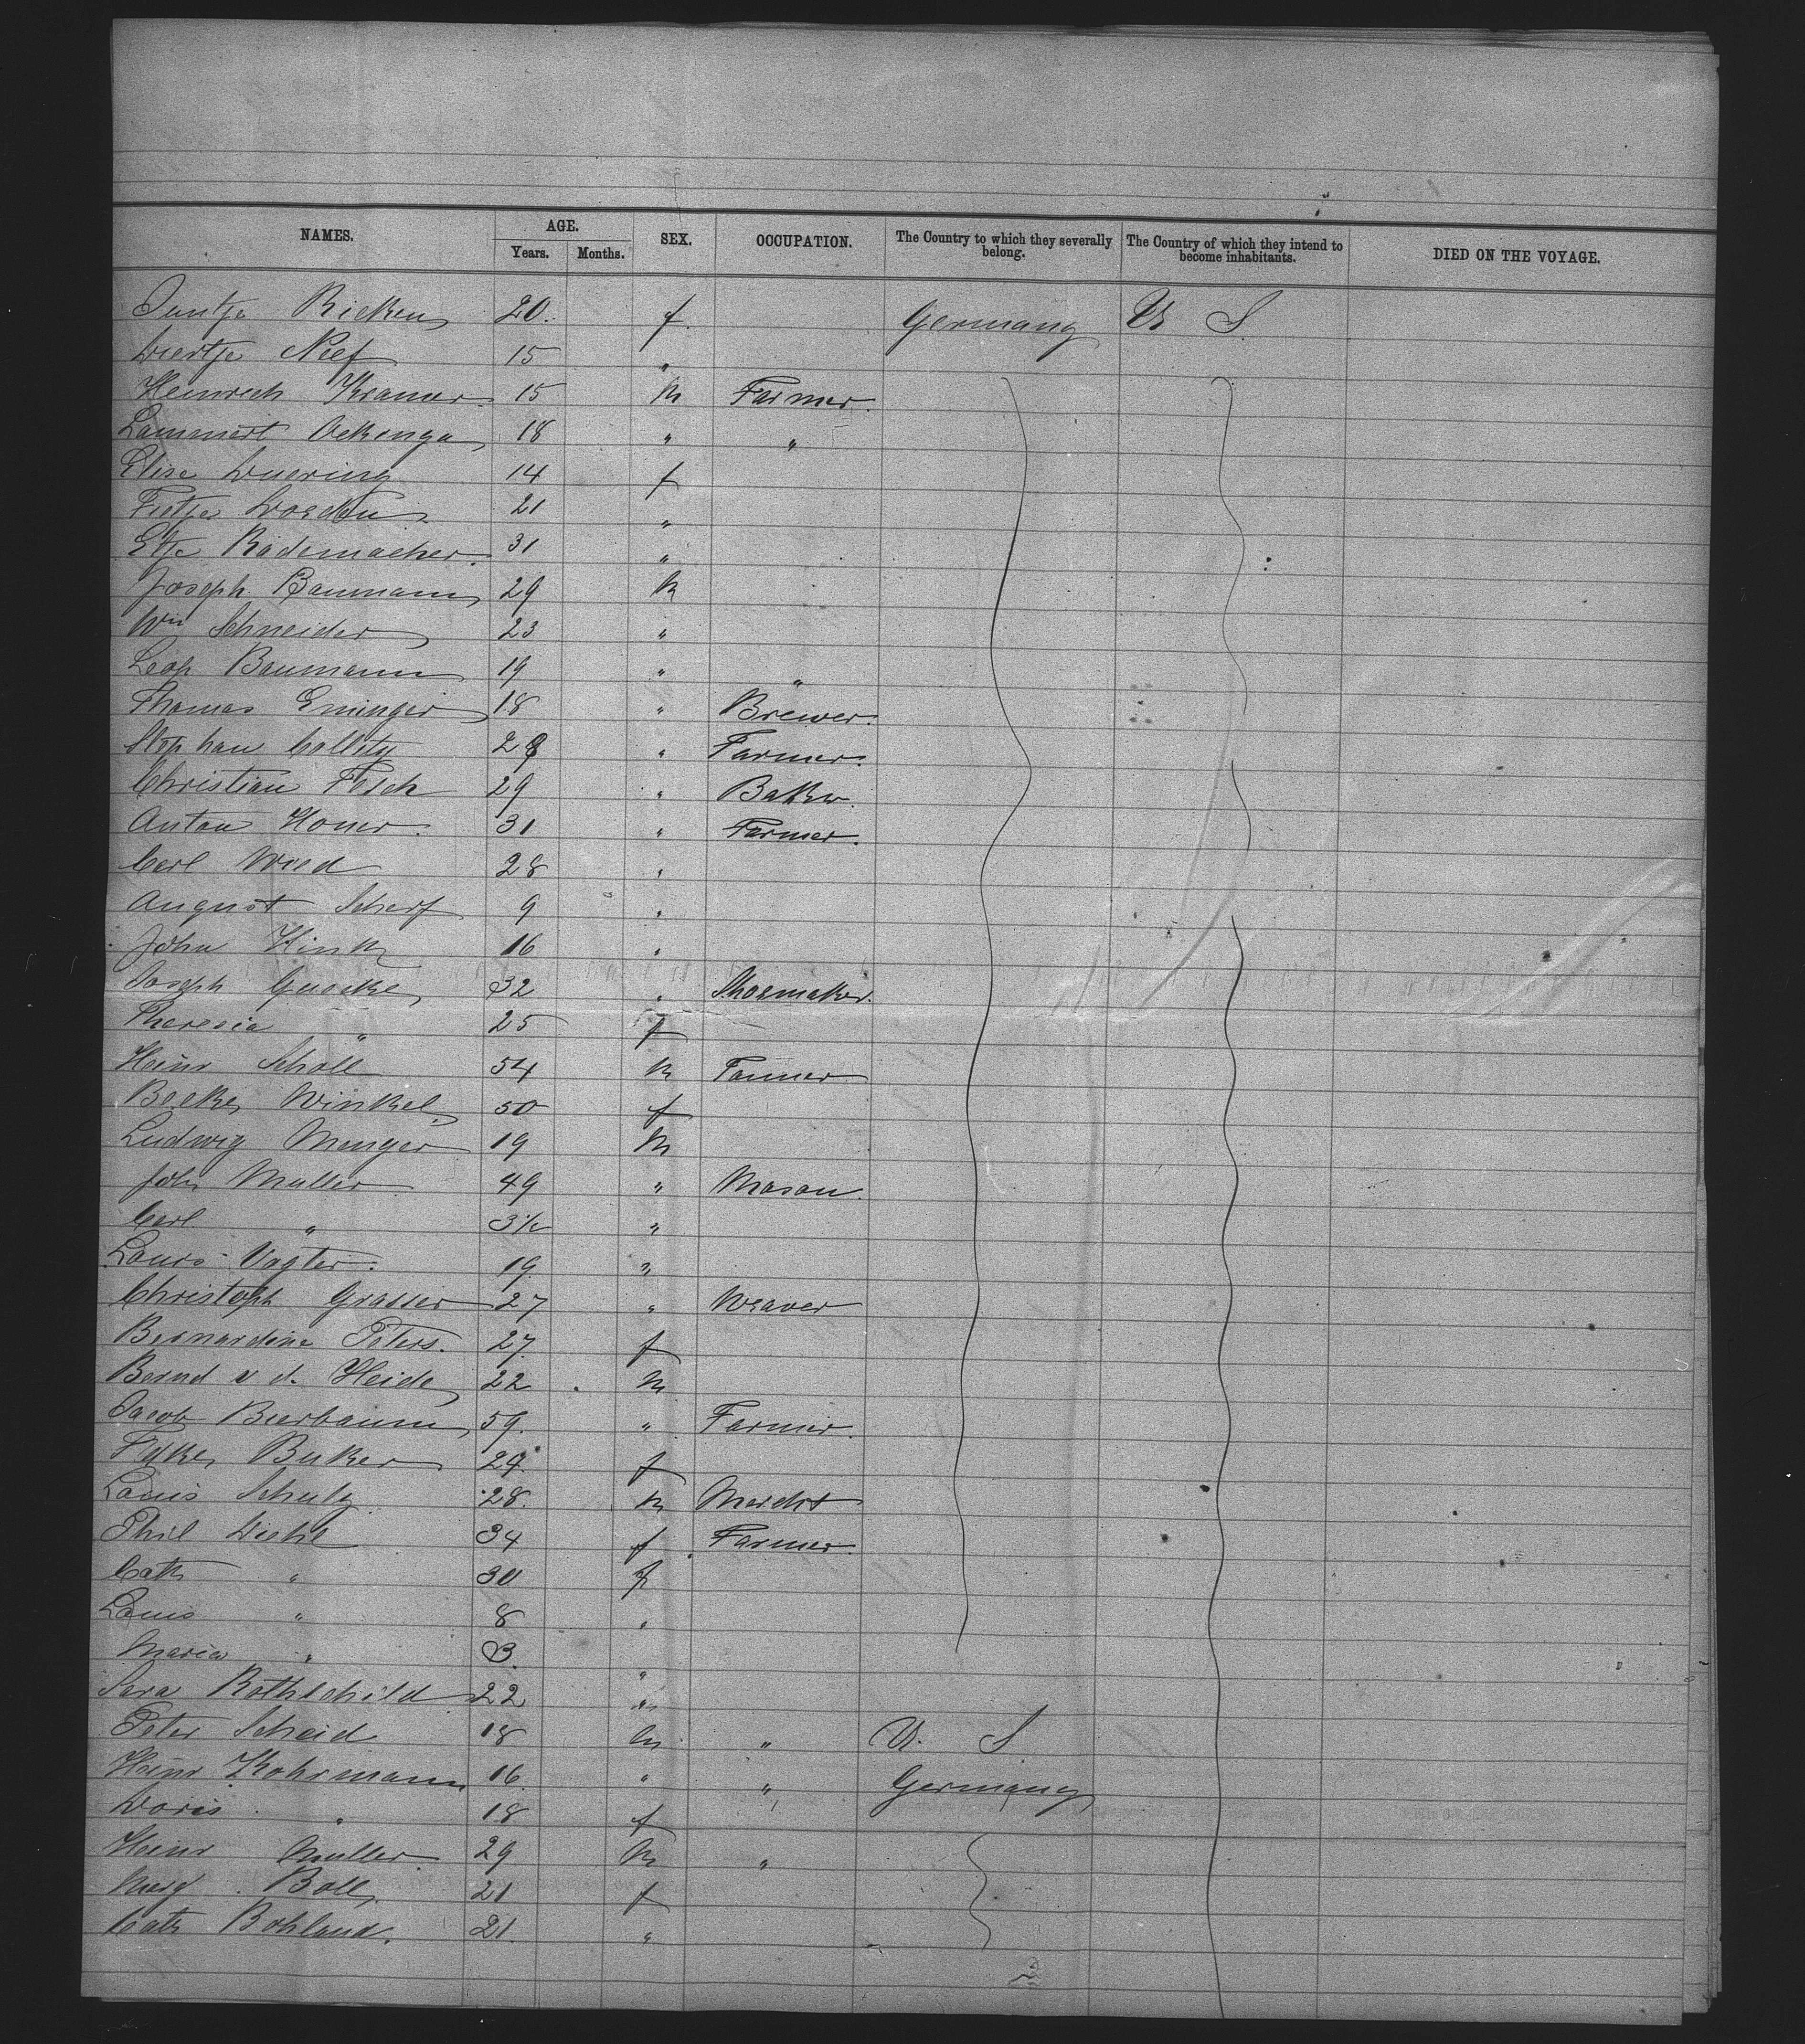 NAMES. AGE. Years. Months. SEX. OCCUPATION. The Country to which they severally belong. The Country of which they intend to become inhabitants. DIED ON THE VOYAGE.
Rickens 20. f. Germany U S
Neef 15 "
Heinrich Kramer 15 m Farmer.
Lammert Ockenga 18 " "
Elise Duering 14 f
Fietje 21 "
Etje Rademacher. 31 "
Joseph Baumann 29 m
Wm Schneider 23 "
Leop Baumann 19 " "
Thomas Eminger 18 " Brewer.
Stephan 28 " Farmer.
Christian Fesch 29 " Baker.
Anton Honer. 31 " Farmer.
Carl Wied 28 "
August Scherf 9 "
John Hink 16 "
Joseph Guecke 32 " Shoemaker.
Theresia " 25 f
Heinr Scholl 54 m Farmer
Beeke Winkel 50 f
Ludwig Menger 19 m
Joh Muller 49 " Mason.
Carl " 3½ "
Louis Vogter. 19 "
Christoph Grasser 27 " Weaver
Bernardine Peters. 27. f
Bernd v d. Heide 22 m
Jacob Bierbaum 59. " Farmer.
Buker 29. f
Louis Schulz 28. m Mercht
Phil Diehl 34 f Farmer.
Cath " 30 f
Louis " 8 "
Maria " 3. "
Sara Rothschild 22 "
Peter Scheid 18 m " U. S
Heinr Kohrmann 16. " " Germany
Doris " 18 f
Heinr Muller. 29 m "
Marg. Boll 21 f
Cath Bohland. 21. "